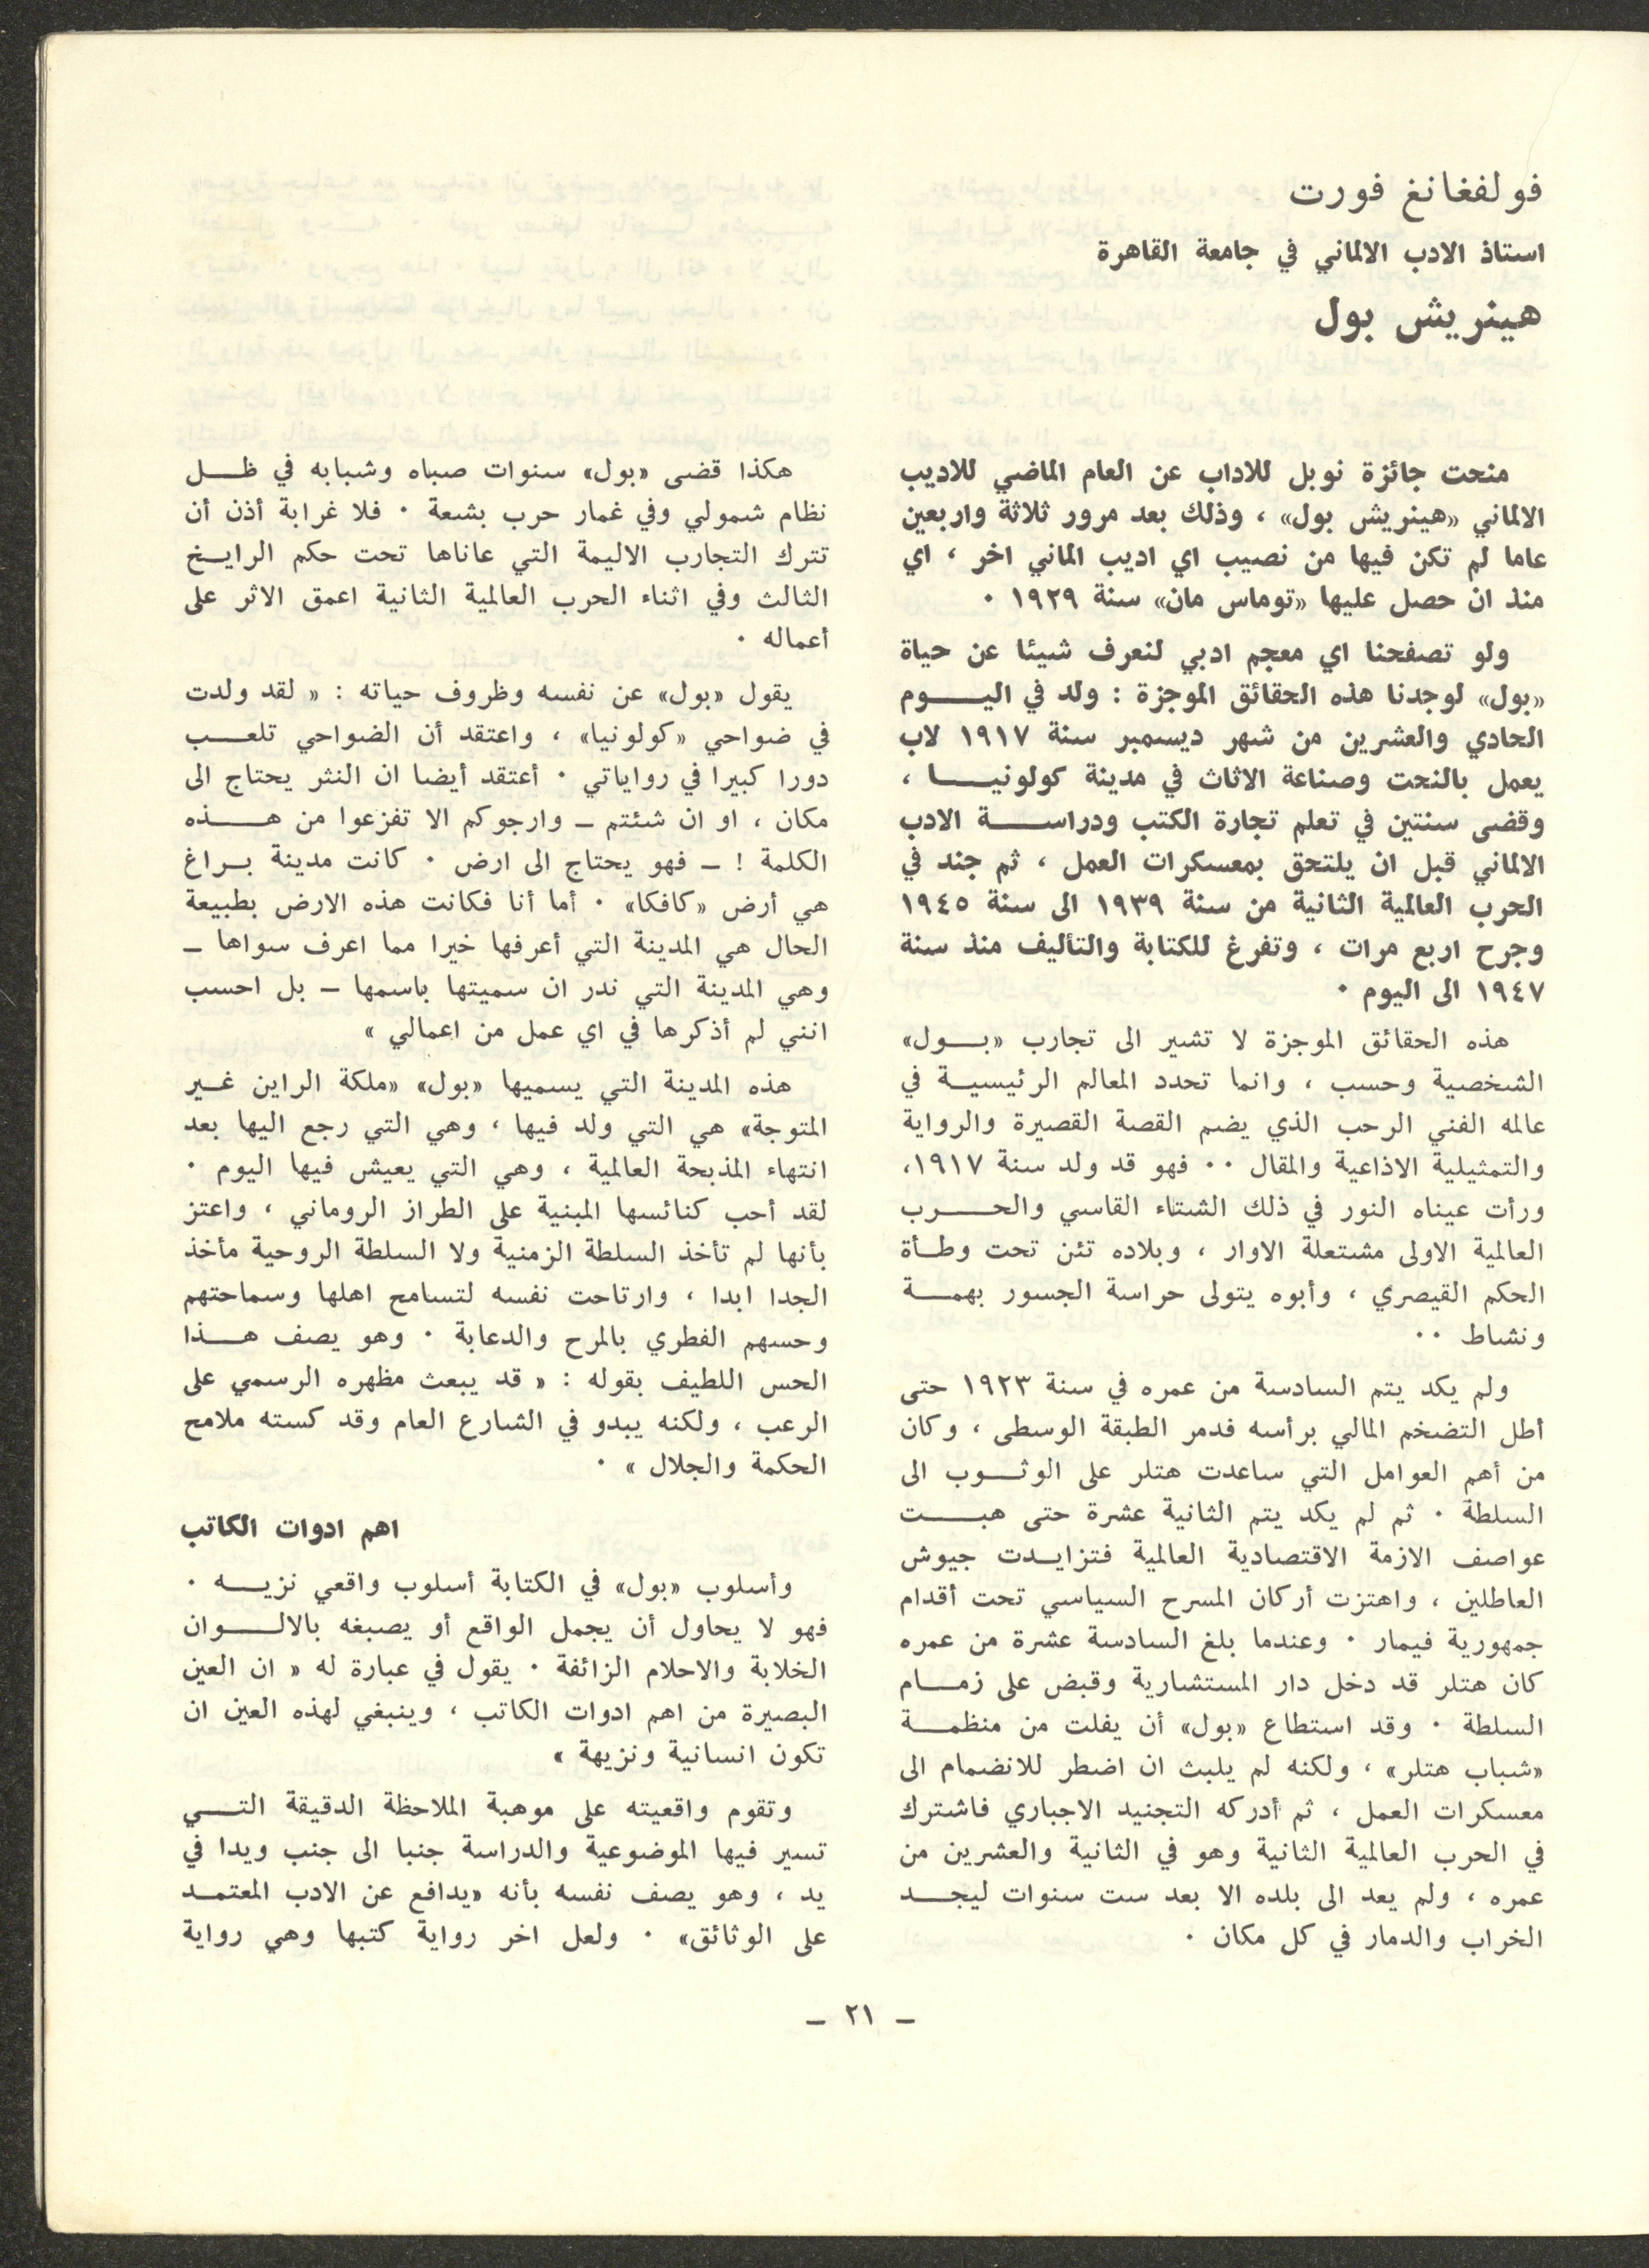 فولفغانغ فورت
استاذ الادب الالماني في جامعة القاهرة
هينريش بول
منحت جائزة نوبل للاداب عن العام الماضي للاديب
الالماني «هينريش بول» ، وذلك بعد مرور ثلاثة واربعين
عاما لم تكن فيها من نصيب اي اديب الماني اخر ، اي
منذ ان حصل عليها «توماس مان» سنة ١٩٢٩ ٠
ولو تصفحنا اي معجم ادبي لنعرف شيئا عن حياة
«بول» لوجدنا هذه الحقائق الموجزة : ولد في اليوم
الحادي والعشرين من شهر ديسمبر سنة ١٩١٧ لاب
يعمل بالنحت وصناعة الاثاث في مدينة كولونيا ،
وقضى سنتين في تعلم تجارة الكتب ودراسة الادب
الالماني قبل ان يلتحق بمعسكرات العمل ، ثم جند في
الحرب العالمية الثانية من سنة ١٩٣٩ الى سنة ١٩٤٥
وجرح اربع مرات ، وتفرغ للكتابة والتأليف منذ سنة
١٩٤٧ الى اليوم ٠
هذه الحقائق الموجزة لا تشير الى تجارب «بول»
الشخصية وحسب ، وانما تحدد المعالم الرئيسية في
عالمه الفني الرحب الذي يضم القصة القصيرة والرواية
والتمثيلية الاذاعية والمقال ٠٠ فهو قد ولد سنة ١٩١٧،
ورأت عيناه النور في ذلك الشتاء القاسي والحرب
العالمية الاولى مشتعلة الاوار ، وبلاده تئن تحت وطأة
الحكم القيصري ، وأبوه يتولى حراسة الجسور بهمة
ونشاط ٠٠
ولم يكد يتم السادسة من عمره في سنة ١٩٢٣ حتى
أطل التضخم المالي برأسه فدمر الطبقة الوسطى ، وكان
من أهم العوامل التي ساعدت هتلر على الوثوب الى
السلطة ٠ ثم لم يكد يتم الثانية عشرة حتى هبت
عواصف الازمة الاقتصادية العالمية فتزايدت جيوش
العاطلين ، واهتزت أركان المسرح السياسي تحت أقدام
جمهورية فيمار ٠ وعندما بلغ السادسة عشرة من عمره
كان هتلر قد دخل دار المستشارية وقبض على زمام
السلطة ٠ وقد استطاع «بول» أن يفلت من منظمة
«شباب هتلر» ، ولكنه لم يلبث ان اضطر للانضمام الى
معسكرات العمل ، ثم أدركه التجنيد الاجباري فاشترك
في الحرب العالمية الثانية وهو في الثانية والعشرين من
عمره ، ولم يعد الى بلده الا بعد ست سنوات ليجد
الخراب والدمار في كل مكان ٠
هكذا قضى «بول» سنوات صباه وشبابه في ظل
نظام شمولي وفي غمار حرب بشعة ٠ فلا غرابة أذن أن
تترك التجارب الاليمة التي عاناها تحت حكم الرايخ
الثالث وفي اثناء الحرب العالمية الثانية اعمق الاثر على
أعماله ٠
يقول «بول» عن نفسه وظروف حياته : « لقد ولدت
في ضواحي «كولونيا» ، واعتقد أن الضواحي تلعب
دورا كبيرا في رواياتي ٠ أعتقد أيضا ان النثر يحتاج الى
مكان ، او ان شئتم – وارجوكم الا تفزعوا من هذه
الكلمة ! – فهو يحتاج الى ارض ٠ كانت مدينة براغ
هي أرض «كافكا» ٠ أما أنا فكانت هذه الارض بطبيعة
الحال هي المدينة التي أعرفها خيرا مما اعرف سواها –
وهي المدينة التي ندر ان سميتها باسمها – بل احسب
انني لم أذكرها في اي عمل من اعمالي »
هذه المدينة التي يسميها «بول» «ملكة الراين غير
المتوجة» هي التي ولد فيها ، وهي التي رجع اليها بعد
انتهاء المذبحة العالمية ، وهي التي يعيش فيها اليوم ٠
لقد أحب كنائسها المبنية على الطراز الروماني ، واعتز
بأنها لم تأخذ السلطة الزمنية ولا السلطة الروحية مأخذ
الجدا ابدا ، وارتاحت نفسه لتسامح اهلها وسماحتهم
وحسهم الفطري بالمرح والدعابة ٠ وهو يصف هذا
الحس اللطيف بقوله : « قد يبعث مظهره الرسمي على
الرعب ، ولكنه يبدو في الشارع العام وقد كسته ملامح
الحكمة والجلال » ٠
اهم ادوات الكاتب
وأسلوب «بول» في الكتابة أسلوب واقعي نزيه ٠
فهو لا يحاول أن يجمل الواقع أو يصبغه بالالوان
الخلابة والاحلام الزائفة ٠ يقول في عبارة له « ان العين
البصيرة من اهم ادوات الكاتب ، وينبغي لهذه العين ان
تكون انسانية ونزيهة »
وتقوم واقعيته على موهبة الملاحظة الدقيقة التي
تسير فيها الموضوعية والدراسة جنبا الى جنب ويدا في
يد ، وهو يصف نفسه بأنه «يدافع عن الادب المعتمد
على الوثائق» ٠ ولعل اخر رواية كتبها وهي رواية
– ٢١ –